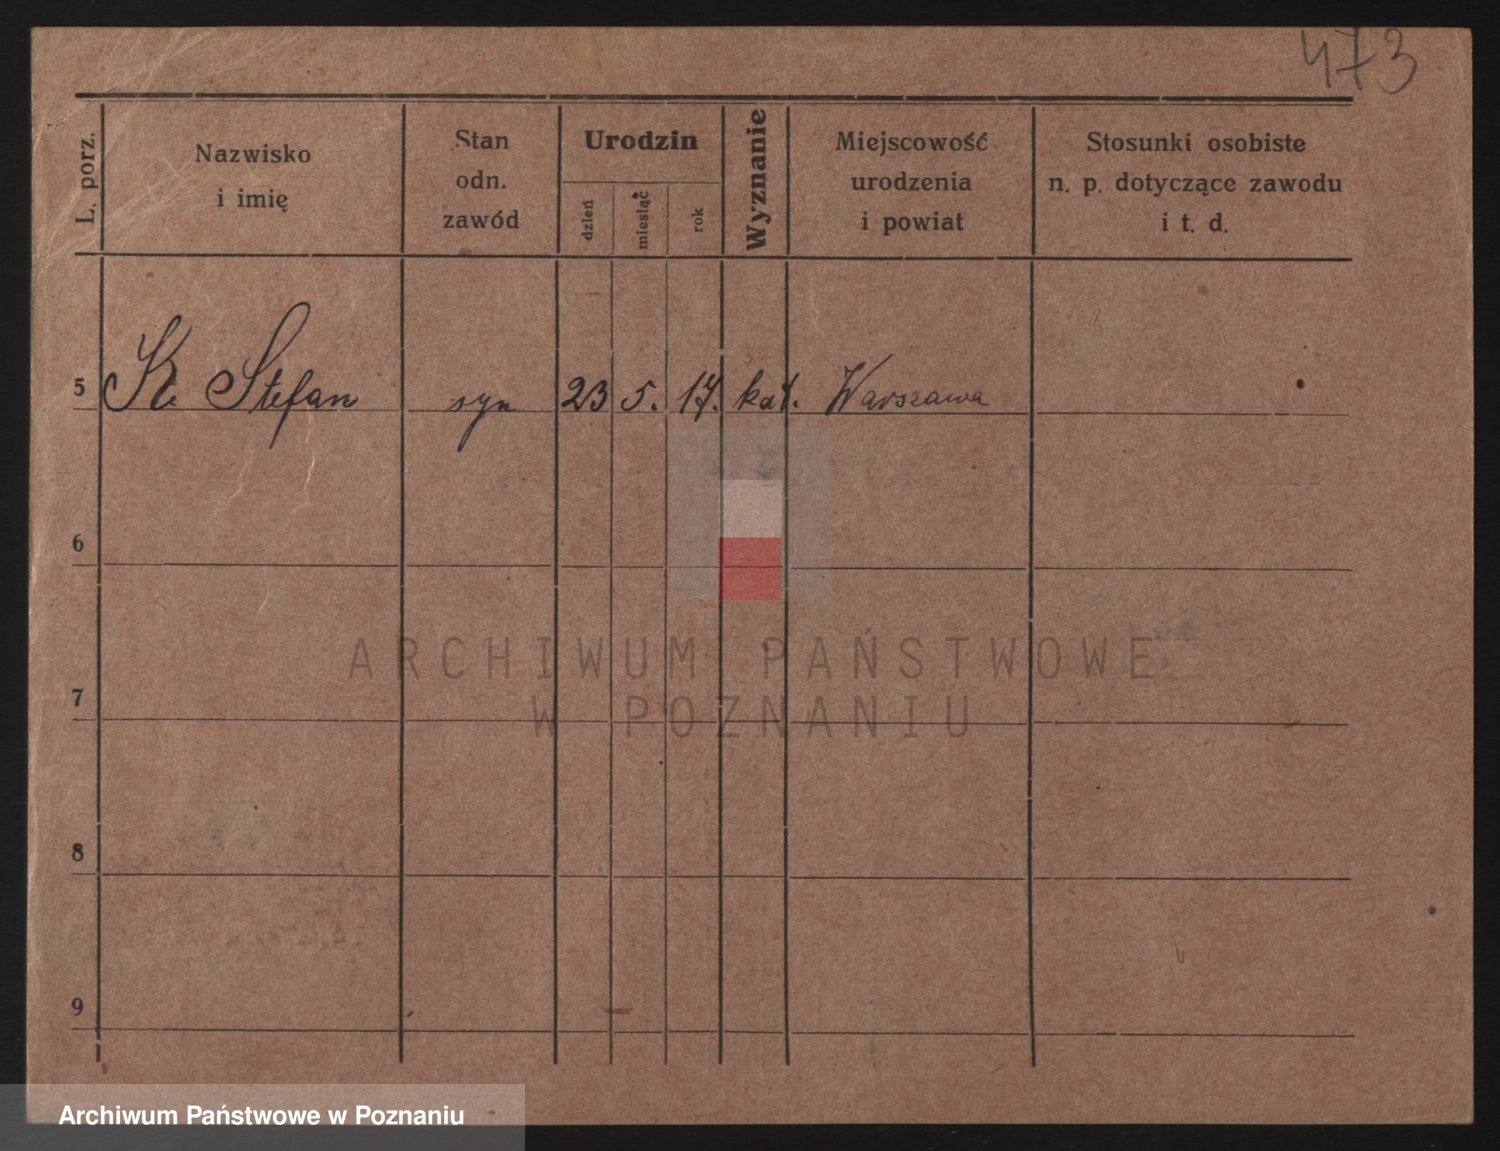 473
L. porz.
Nazwisko
i imię
Stan
odn.
zawód
Urodzin
dzień
miesiąc
rok
Wyznanie
Miejscowość
urodzenia
i powiat
Stosunki osobiste
n. p. dotyczące zawodu
i t. d.
5 K. Stefan syn 23 5. 17. kat. Warszawa
6
ARCHIWUM PAŃSTWOWE
7
W POZNANIU
8
9
Archiwum Państwowe w Poznaniu